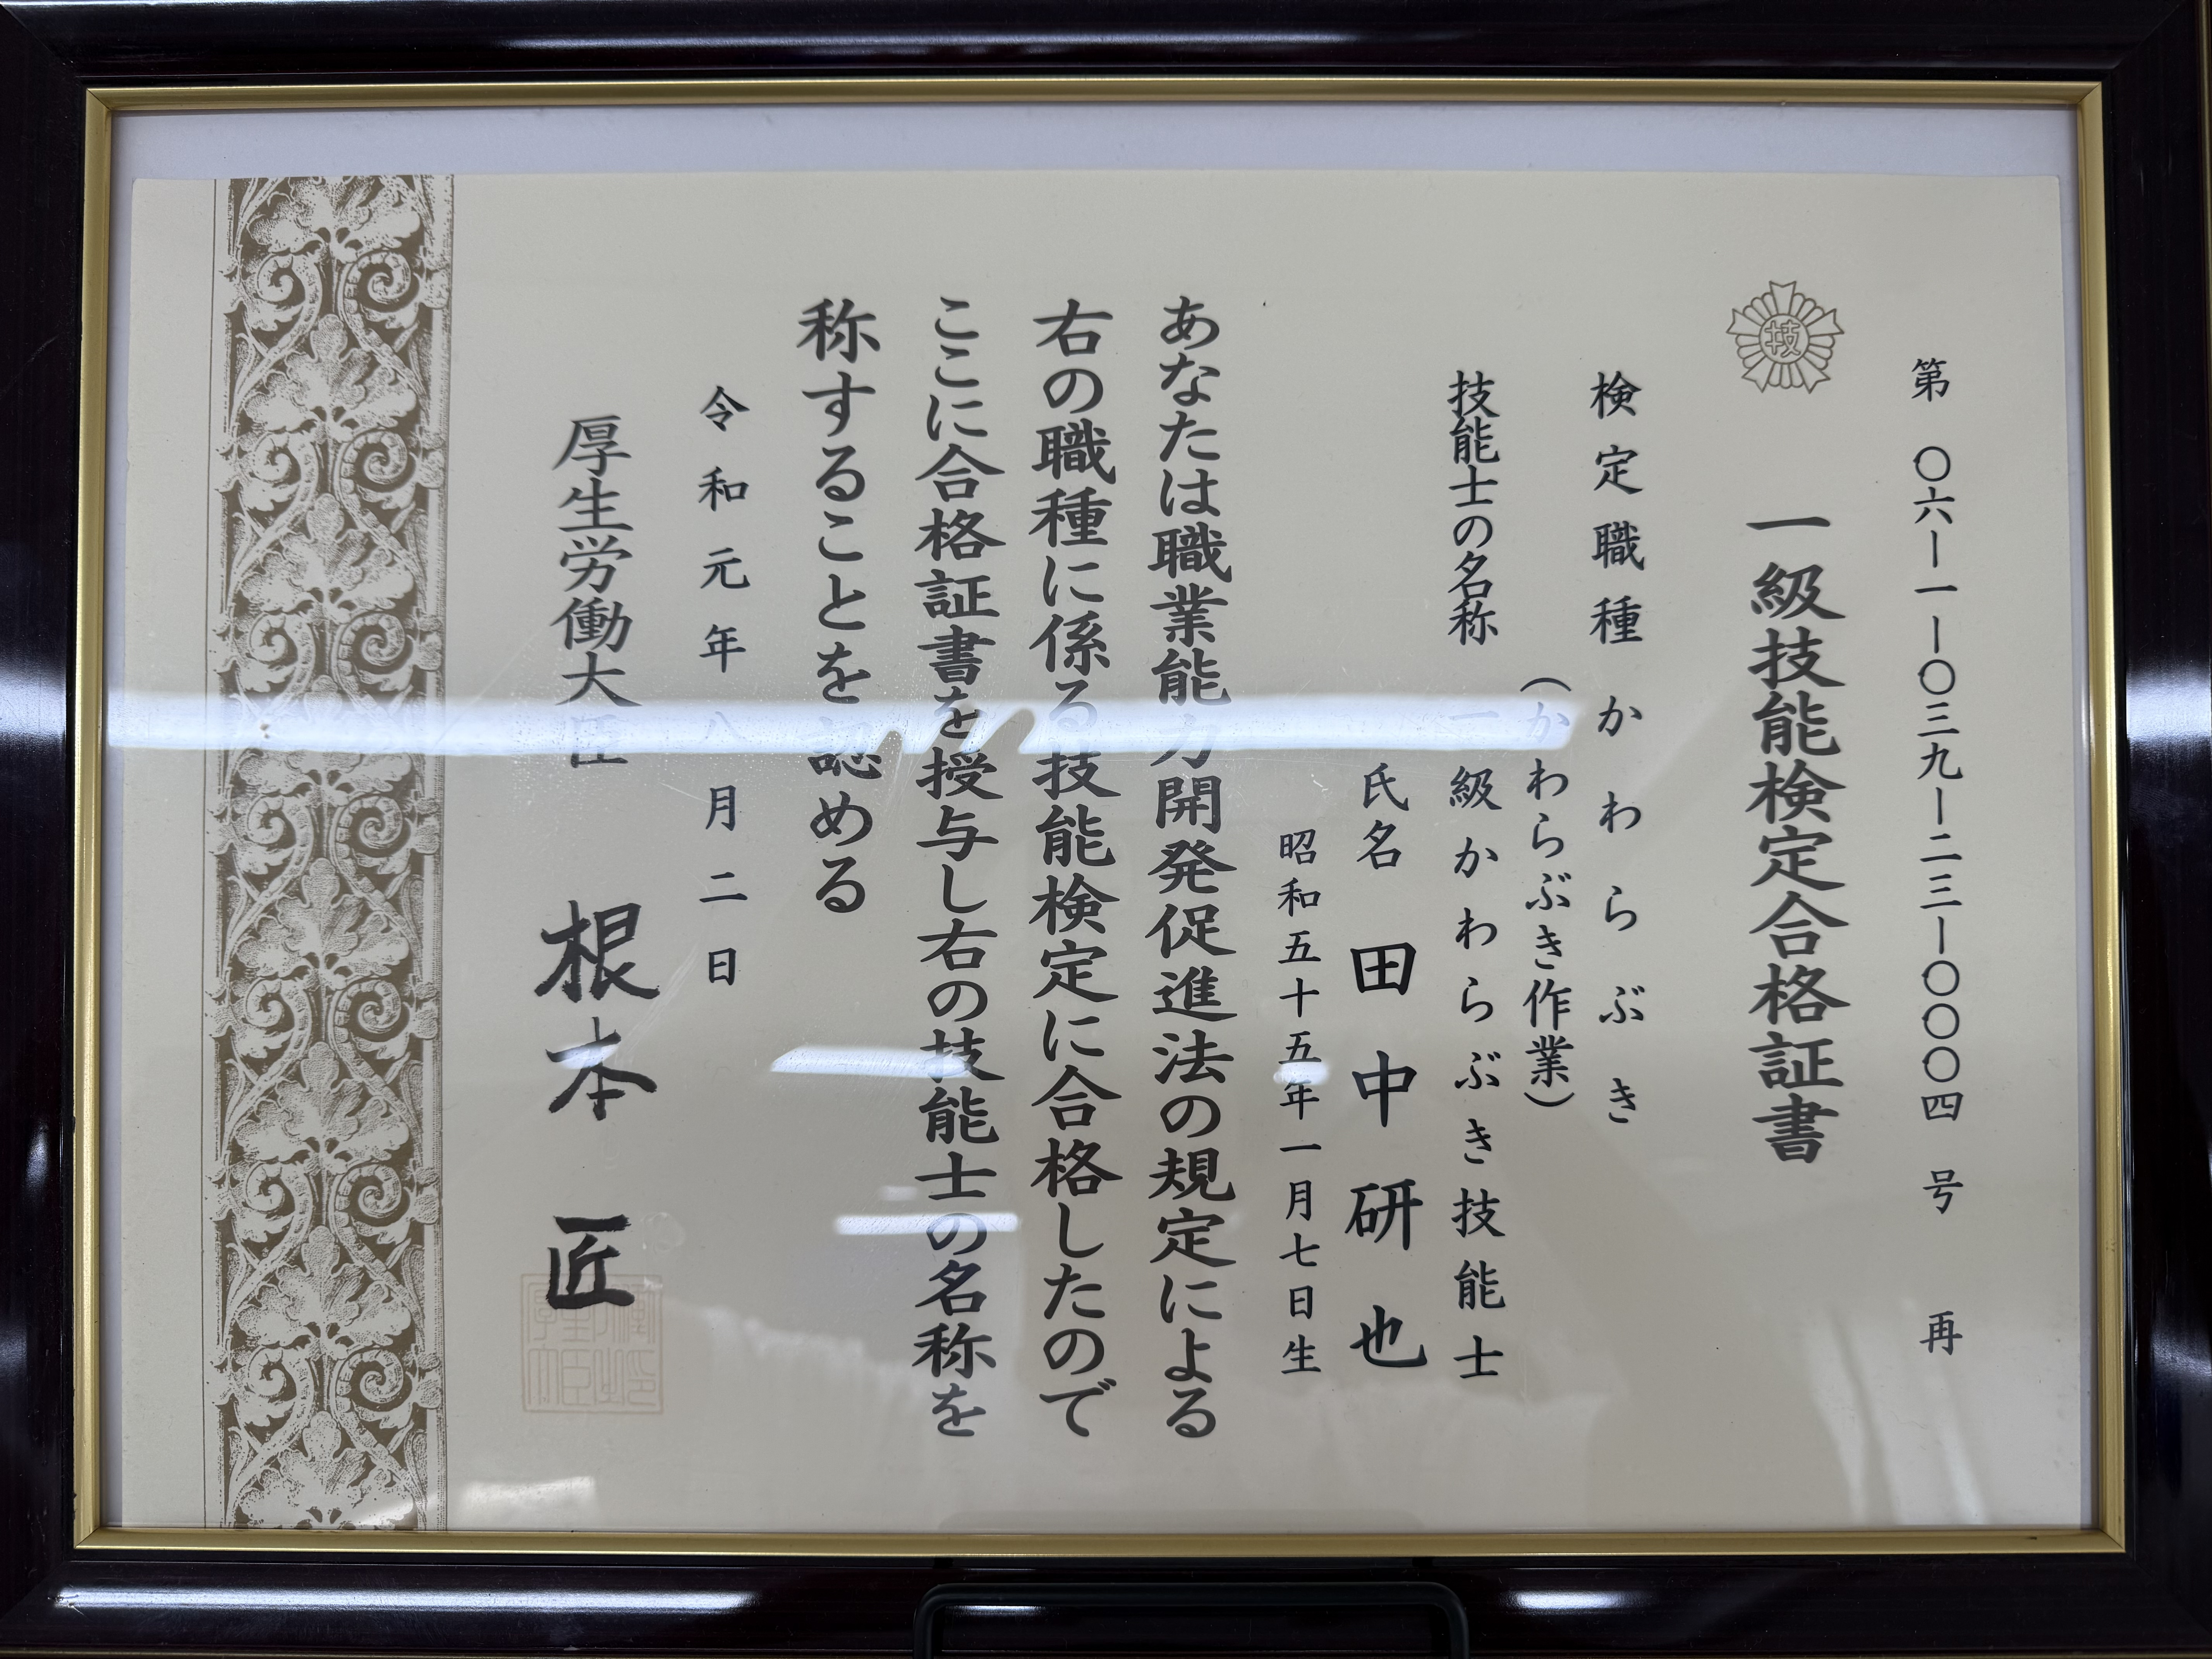 第 〇六ー一ー〇三九ー二三ー〇〇〇四 号 再
技
一級技能検定合格証書
検定職種 かわらぶき
(かわらぶき作業)
技能士の名称 一級かわらぶき技能士
氏名 田中研也
昭和五十五年一月七日生
あなたは職業能力開発促進法の規定による
右の職種に係る技能検定に合格したので
ここに合格証書を授与し右の技能士の名称を
称することを認める
令和元年八月二日
厚生労働大臣 根本匠